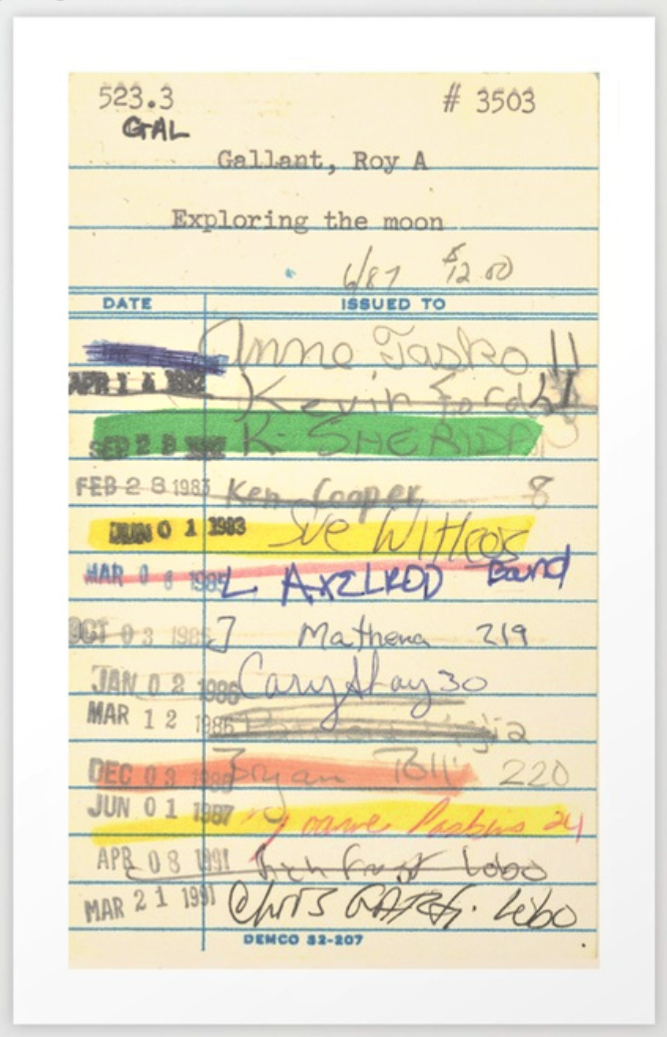 523.3 # 3503
GAL
Gallant, Roy A
Exploring the moon
6/87 $12.00
DATE ISSUED TO
Anne Tasko 11
APR 1 4 1982 Kevin Ford
SEP 2 8 K. SHERIDAN
FEB 2 8 1983 Ken Cooper 8
JUN 0 1 1983 Sue
MAR 0 6 1985 L. AXELROD Band
OCT 0 3 1985 J Mathena 219
JAN 0 2 1986 Cary 30
MAR 1 2 1986
DEC 0 3 1986 Bryan 220
JUN 0 1 1987 24
APR 0 8 1991 Lobo
MAR 2 1 1991 Chris Lobo
DEMCO 32-207